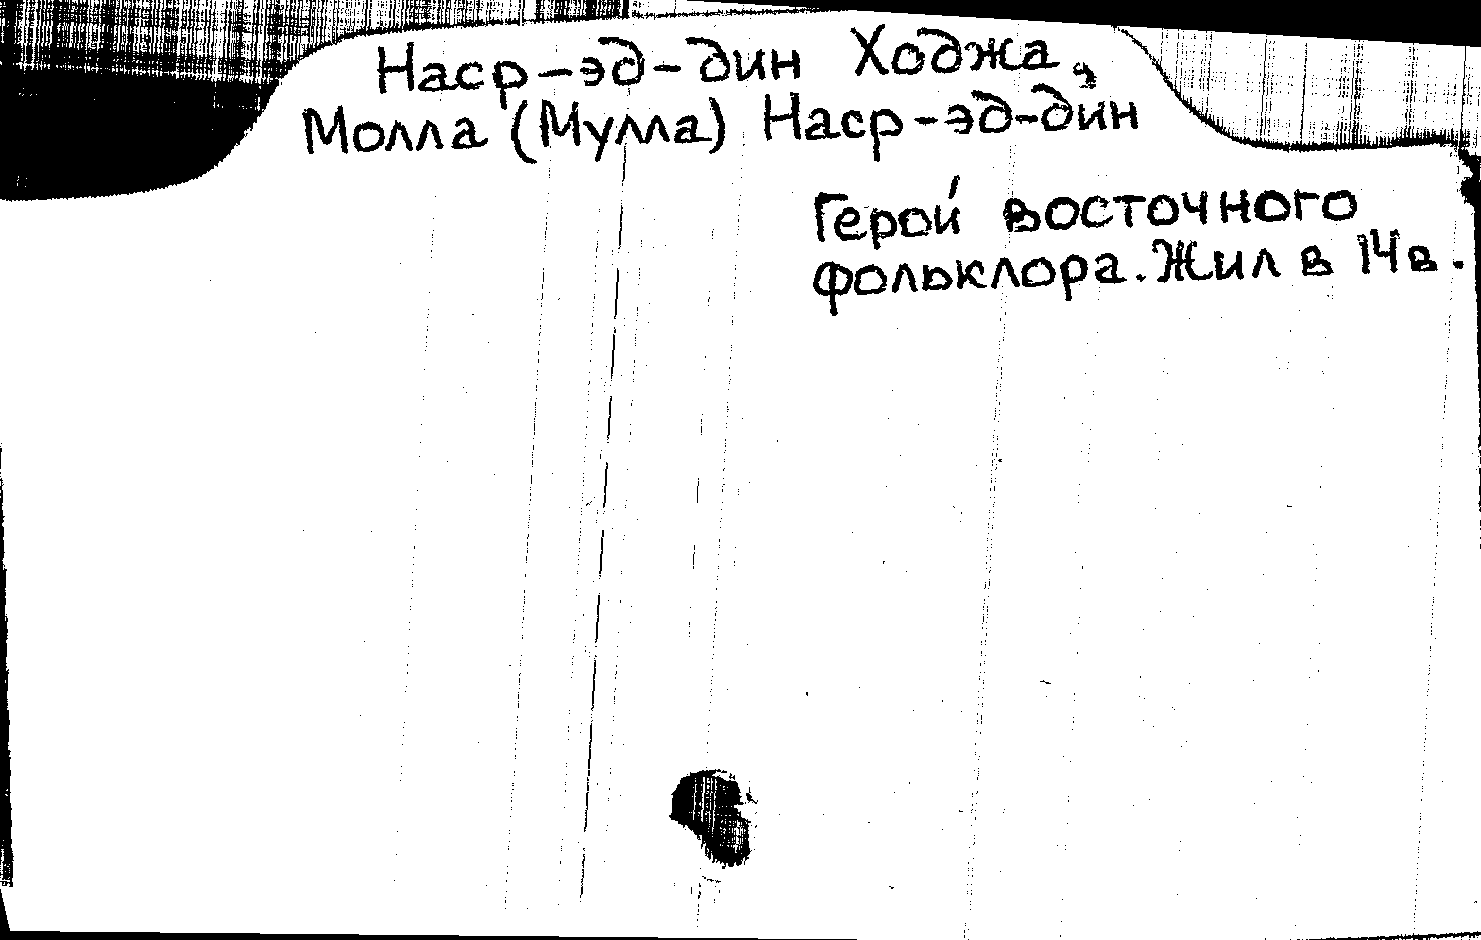 Наср-эд-дин Ходжа,
Молла (Мулла) Наср-эд-дин
Герой восточного
фольклора. Жил в 14 в.